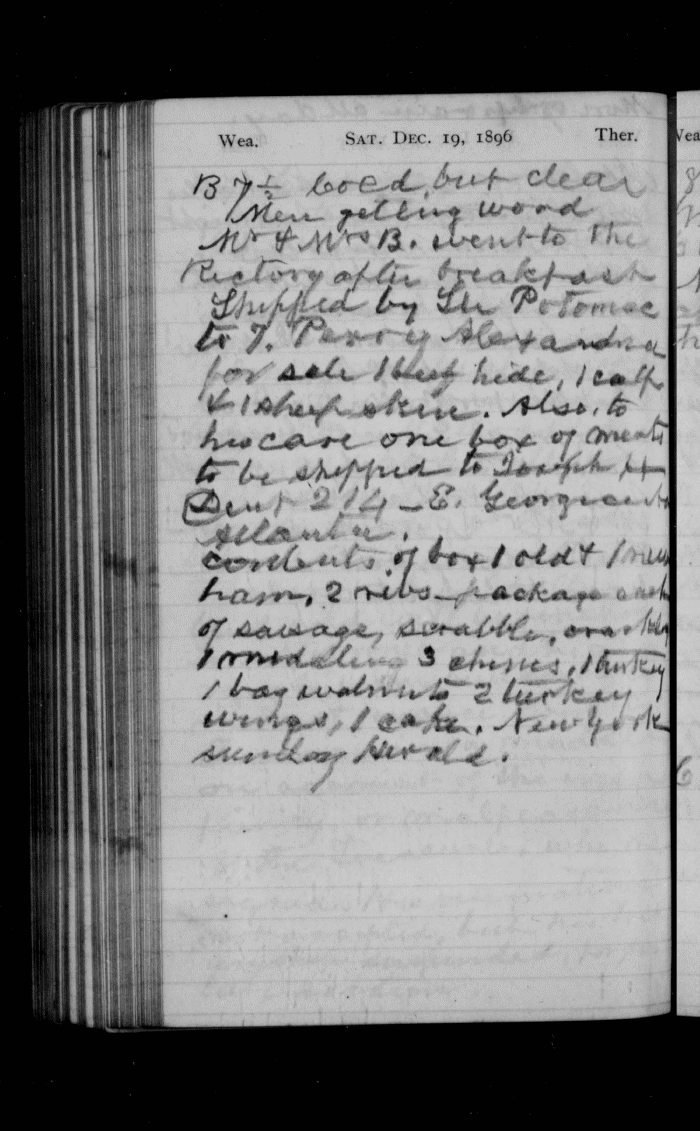 Wea. SAT. DEC. 19, 1896 Ther.
B 7½ cold, but clear
Men getting wood
Mr & Mrs B. went to the
Rectory after breakfast
Shipped by Str Potomac
to T. Perry Alexandria
for sale 1 beef hide, 1 calf
& 1 sheep skin. Also, to
his care one box of meats
to be shipped to Joseph H
Dent 214 - E. Georgia
Atlanta.
contents of box 1 old & 1 new
ham, 2 ribs package each
of sausage, scrabble,
1 middling 3 cheeses, 1 turkey
1 bag walnuts 2 turkey
wings, 1 cake. New York
sunday Herald.